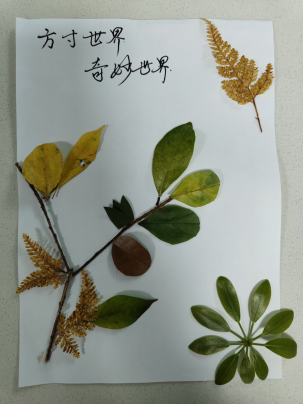 方寸世界
奇妙世界